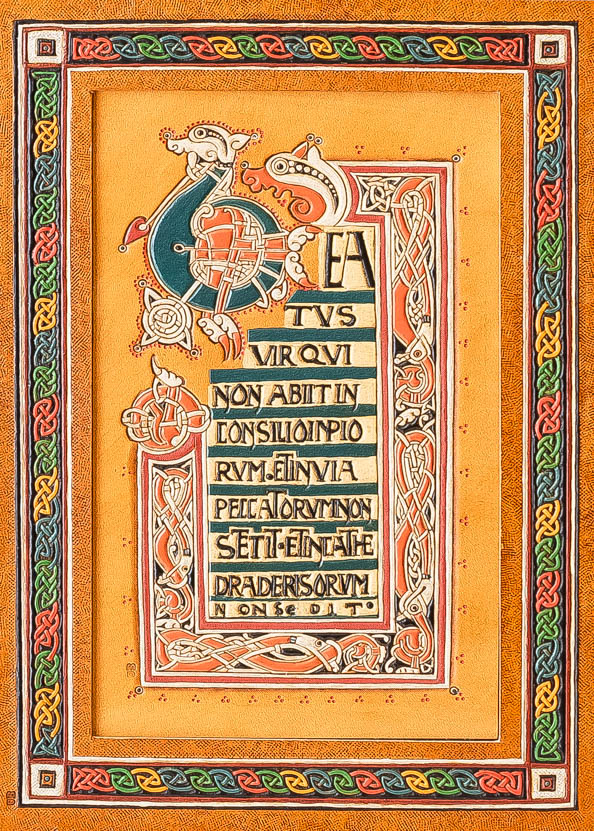 BEA
TVS
VIR QVI
NON ABIIT IN
CONSILIO INPIO
RVM·ET IN VIA
PECCATORVM NON
SETIT·ET IN CATHE
DRA DERISORVM
NON SeDIT·